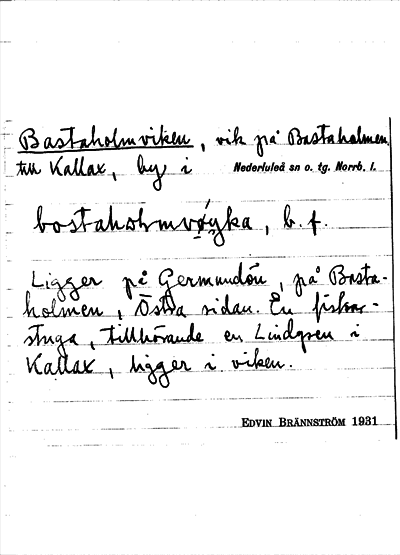 Bastaholmviken, vik på Bastaholmen
till Kallax, by i Nederluleå sn o. tg. Norrb. l.
bostahołmvǿ̨yka, b. f.
Ligger på Germundön, på Basta-
holmen, Östra sidan. En fiskar-
stuga, tillhörande en Lindgren i
Kallax, ligger i viken.
EDVIN BRÄNNSTRÖM 1931